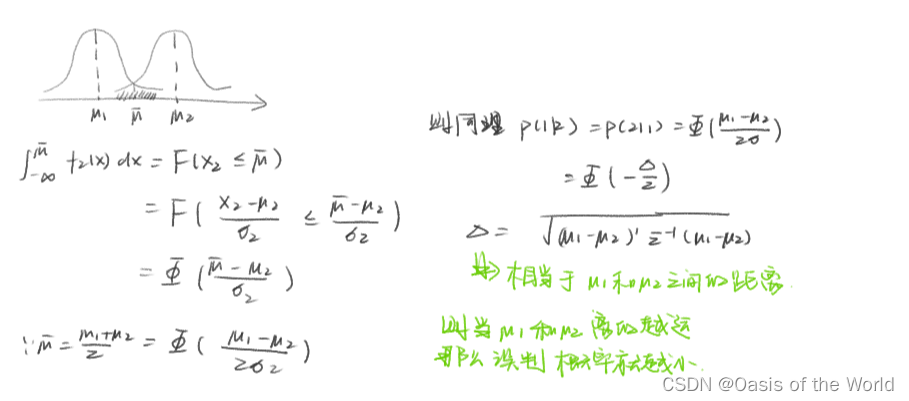 μ₁ μ̄ μ₂
∫_{-∞}^{μ̄} f₂(x) dx = F(x₂ ≤ μ̄)
= F( (x₂-μ₂)/σ₂ ≤ (μ̄-μ₂)/σ₂ )
= Φ( (μ̄-μ₂)/σ₂ )
∵ μ̄ = (μ₁+μ₂)/2 = Φ( (μ₁-μ₂)/2σ₂ )
则同理 P(1|2) = P(2|1) = Φ( (μ₁-μ₂)/2σ )
= Φ( -Δ/2 )
Δ = √((μ₁-μ₂)' Σ⁻¹ (μ₁-μ₂))
相当于 μ₁和μ₂之间的距离
则当 μ₁和μ₂ 离的越远
那么误判概率就越小.
CSDN @Oasis of the World